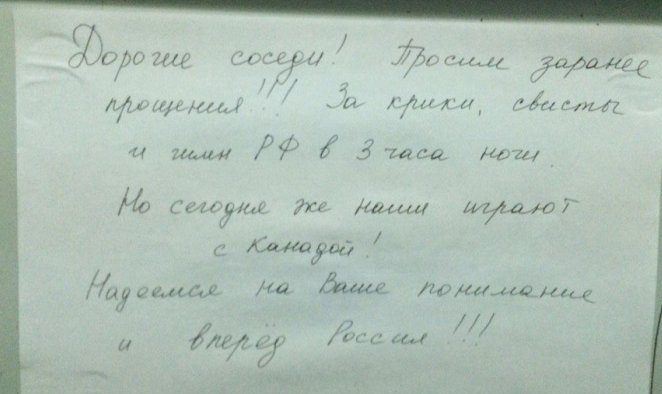 Дорогие соседи! Просим заранее
прощения!!! За крики, свисты
и гимн РФ в 3 часа ночи.
Но сегодня же наши играют
с Канадой!
Надеемся на Ваше понимание
и вперёд Россия!!!